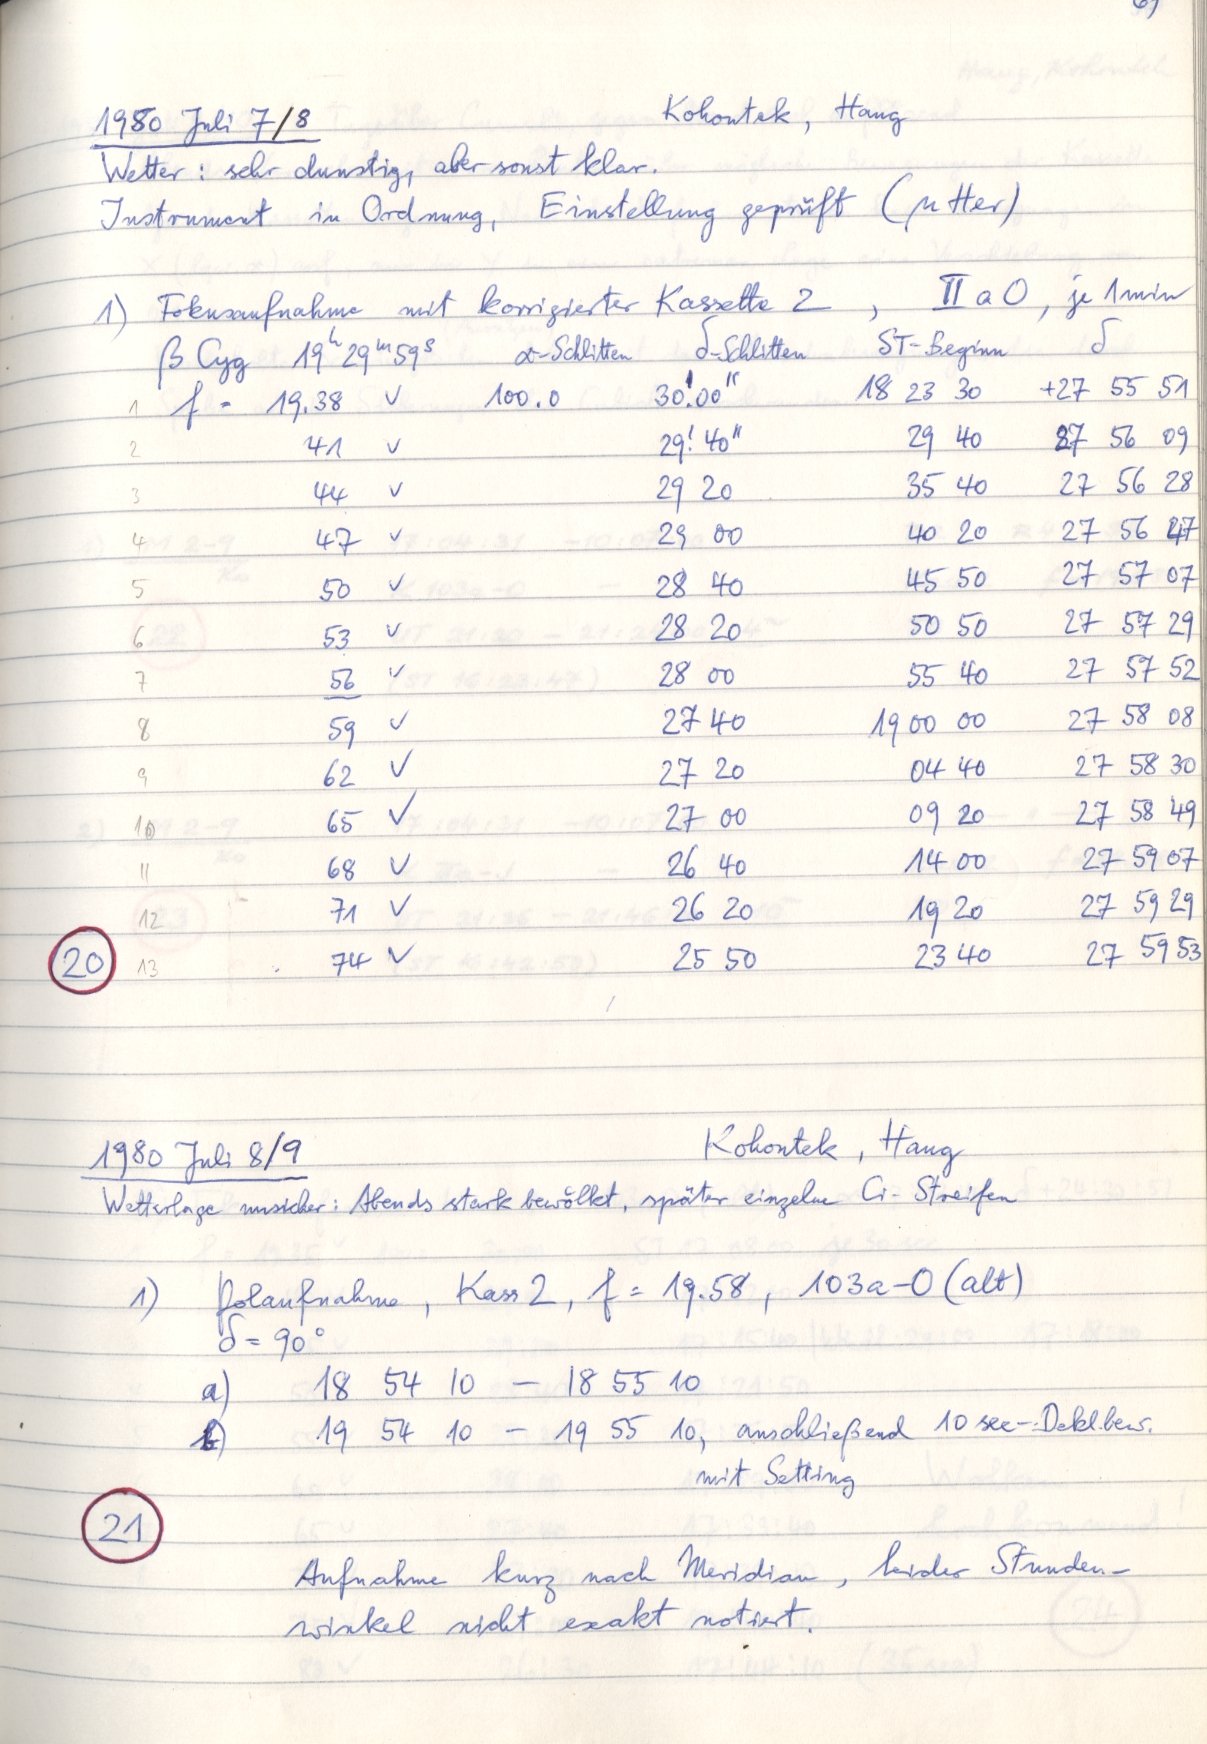 1980 Juli 7/8 Kohoutek, Haug
Wetter: sehr dunstig, aber sonst klar.
Instrument in Ordnung, Einstellung geprüft (μ Her)
1) Fokusaufnahme mit korrigierter Kassette 2, II a O, je 1 min
β Cyg 19h 29m 59s α-Schlitten δ-Schlitten ST-Beginn δ
1 f = 19.38 ✓ 100.0 30'.00" 18 23 30 +27 55 51
2 41 ✓ 29' 40" 29 40 27 56 09
3 44 ✓ 29 20 35 40 27 56 28
4 47 ✓ 29 00 40 20 27 56 47
5 50 ✓ 28 40 45 50 27 57 07
6 53 ✓ 28 20 50 50 27 57 29
7 56 ✓ 28 00 55 40 27 57 52
8 59 ✓ 27 40 19 00 00 27 58 08
9 62 ✓ 27 20 04 40 27 58 30
10 65 ✓ 27 00 09 20 27 58 49
11 68 ✓ 26 40 14 00 27 59 07
12 71 ✓ 26 20 19 20 27 59 29
20 13 74 ✓ 25 50 23 40 27 59 53
1980 Juli 8/9 Kohoutek, Haug
Wetterlage unsicher: Abends stark bewölkt, später einzelne Ci-Streifen
1) Polaufnahme, Kass 2, f = 19.58, 103a-O (alt)
δ = 90°
a) 18 54 10 – 18 55 10
b) 19 54 10 – 19 55 10, anschließend 10 sec-Dekl.bew.
mit Setting
21
Aufnahme kurz nach Meridian, leider Stunden-
winkel nicht exakt notiert.